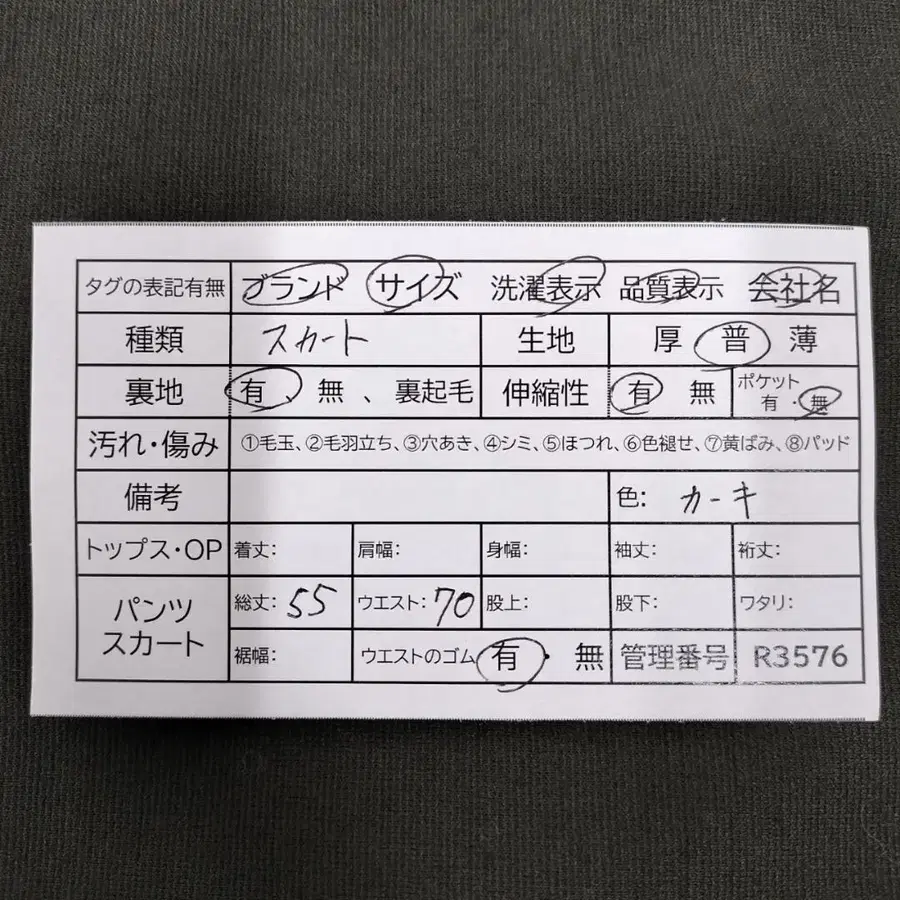 タグの表記有無 ブランド サイズ 洗濯表示 品質表示 会社名
種類 スカート 生地 厚 普 薄
裏地 有、無、裏起毛 伸縮性 有 無 ポケット 有・無
汚れ・傷み ①毛玉、②毛羽立ち、③穴あき、④シミ、⑤ほつれ、⑥色褪せ、⑦黄ばみ、⑧パッド
備考 色: カーキ
トップス・OP 着丈: 肩幅: 身幅: 袖丈: 裄丈:
パンツ スカート 総丈: 55 ウエスト: 70 股上: 股下: ワタリ:
裾幅: ウエストのゴム 有・無 管理番号 R3576